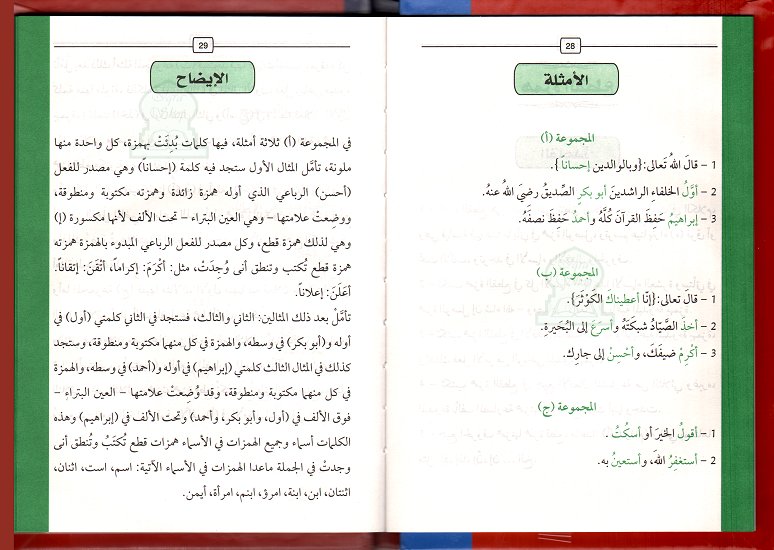 28
الأمثلة
المجموعة (أ)
1 – قالَ اللهُ تَعالى:{وبالوالدين إحساناً}.
2 – أوَّلُ الخلفاءِ الراشدينَ أبو بكرٍ الصِّديقُ رضيَ اللهُ عنهُ.
3 – إبراهيمُ حَفِظَ القرآنَ كُلَّهُ وأحمدُ حَفِظَ نصفَهُ.
المجموعة (ب)
1 – قالَ تعالى:{إنّا أعطيناكَ الكَوْثَرَ}.
2 – أخذَ الصَّيّادُ شبكَتَهُ وأسرَعَ إلى البُحَيرةِ.
3 – أكْرِمْ ضيفَكَ، وأحْسِنْ إلى جارِك.
المجموعة (ج)
1 – أقولُ الخيرَ أو أسكُتُ.
2 – أستغفِرُ اللهَ، وأستعينُ به.
29
الإيضاح
في المجموعة (أ) ثلاثة أمثلة، فيها كلمات بُدِئَتْ بهمزة، كل واحدة منها
ملونة، تأمَّل المثال الأول ستجد فيه كلمة (إحساناً) وهي مصدر للفعل
(أحسن) الرباعي الذي أوله همزة زائدة وهمزته مكتوبة ومنطوقة،
ووضِعتْ علامتها – وهي العين البتراء – تحت الألف لأنها مكسورة (إ)
وهي لذلك همزة قطع، وكل مصدر للفعل الرباعي المبدوء بالهمزة همزته
همزة قطع تُكتب وتنطق أنى وُجدَتْ، مثل: أكْرَمَ: إكراماً، أتْقَنَ: إتقاناً.
أعلَنَ: إعلاناً.
تأمَّلْ بعد ذلك المثالين: الثاني والثالث، فستجد في الثاني كلمتي (أول) في
أوله و(أبو بكر) في وسطه، والهمزة في كل منهما مكتوبة ومنطوقة، وستجد
كذلك في المثال الثالث كلمتي (إبراهيم) في أوله و(أحمد) في وسطه، والهمزة
في كل منهما مكتوبة ومنطوقة، وقد وُضِعتْ علامتها – العين البتراء –
فوق الألف في (أول، وأبو بكر، وأحمد) وتحت الألف في (إبراهيم) وهذه
الكلمات أسماء وجميع الهمزات في الأسماء همزات قطع تُكتَبُ وتُنطق أنى
وجدتْ في الجملة ماعدا الهمزات في الأسماء الآتية: اسم، است، اثنان،
اثنتان، ابن، ابنة، امرؤ، ابنم، امرأة، أيمن.